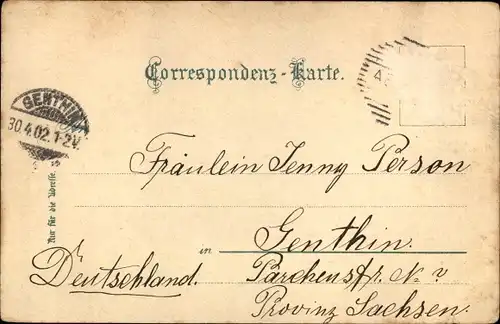 Correspondenz-Karte.
GENTHIN
30.4.02.1-2V.
4
Nur für die Adresse.
Fräulein Jenny Person
in Genthin.
Deutschland. Parchenstr. No ?
Provinz Sachsen.